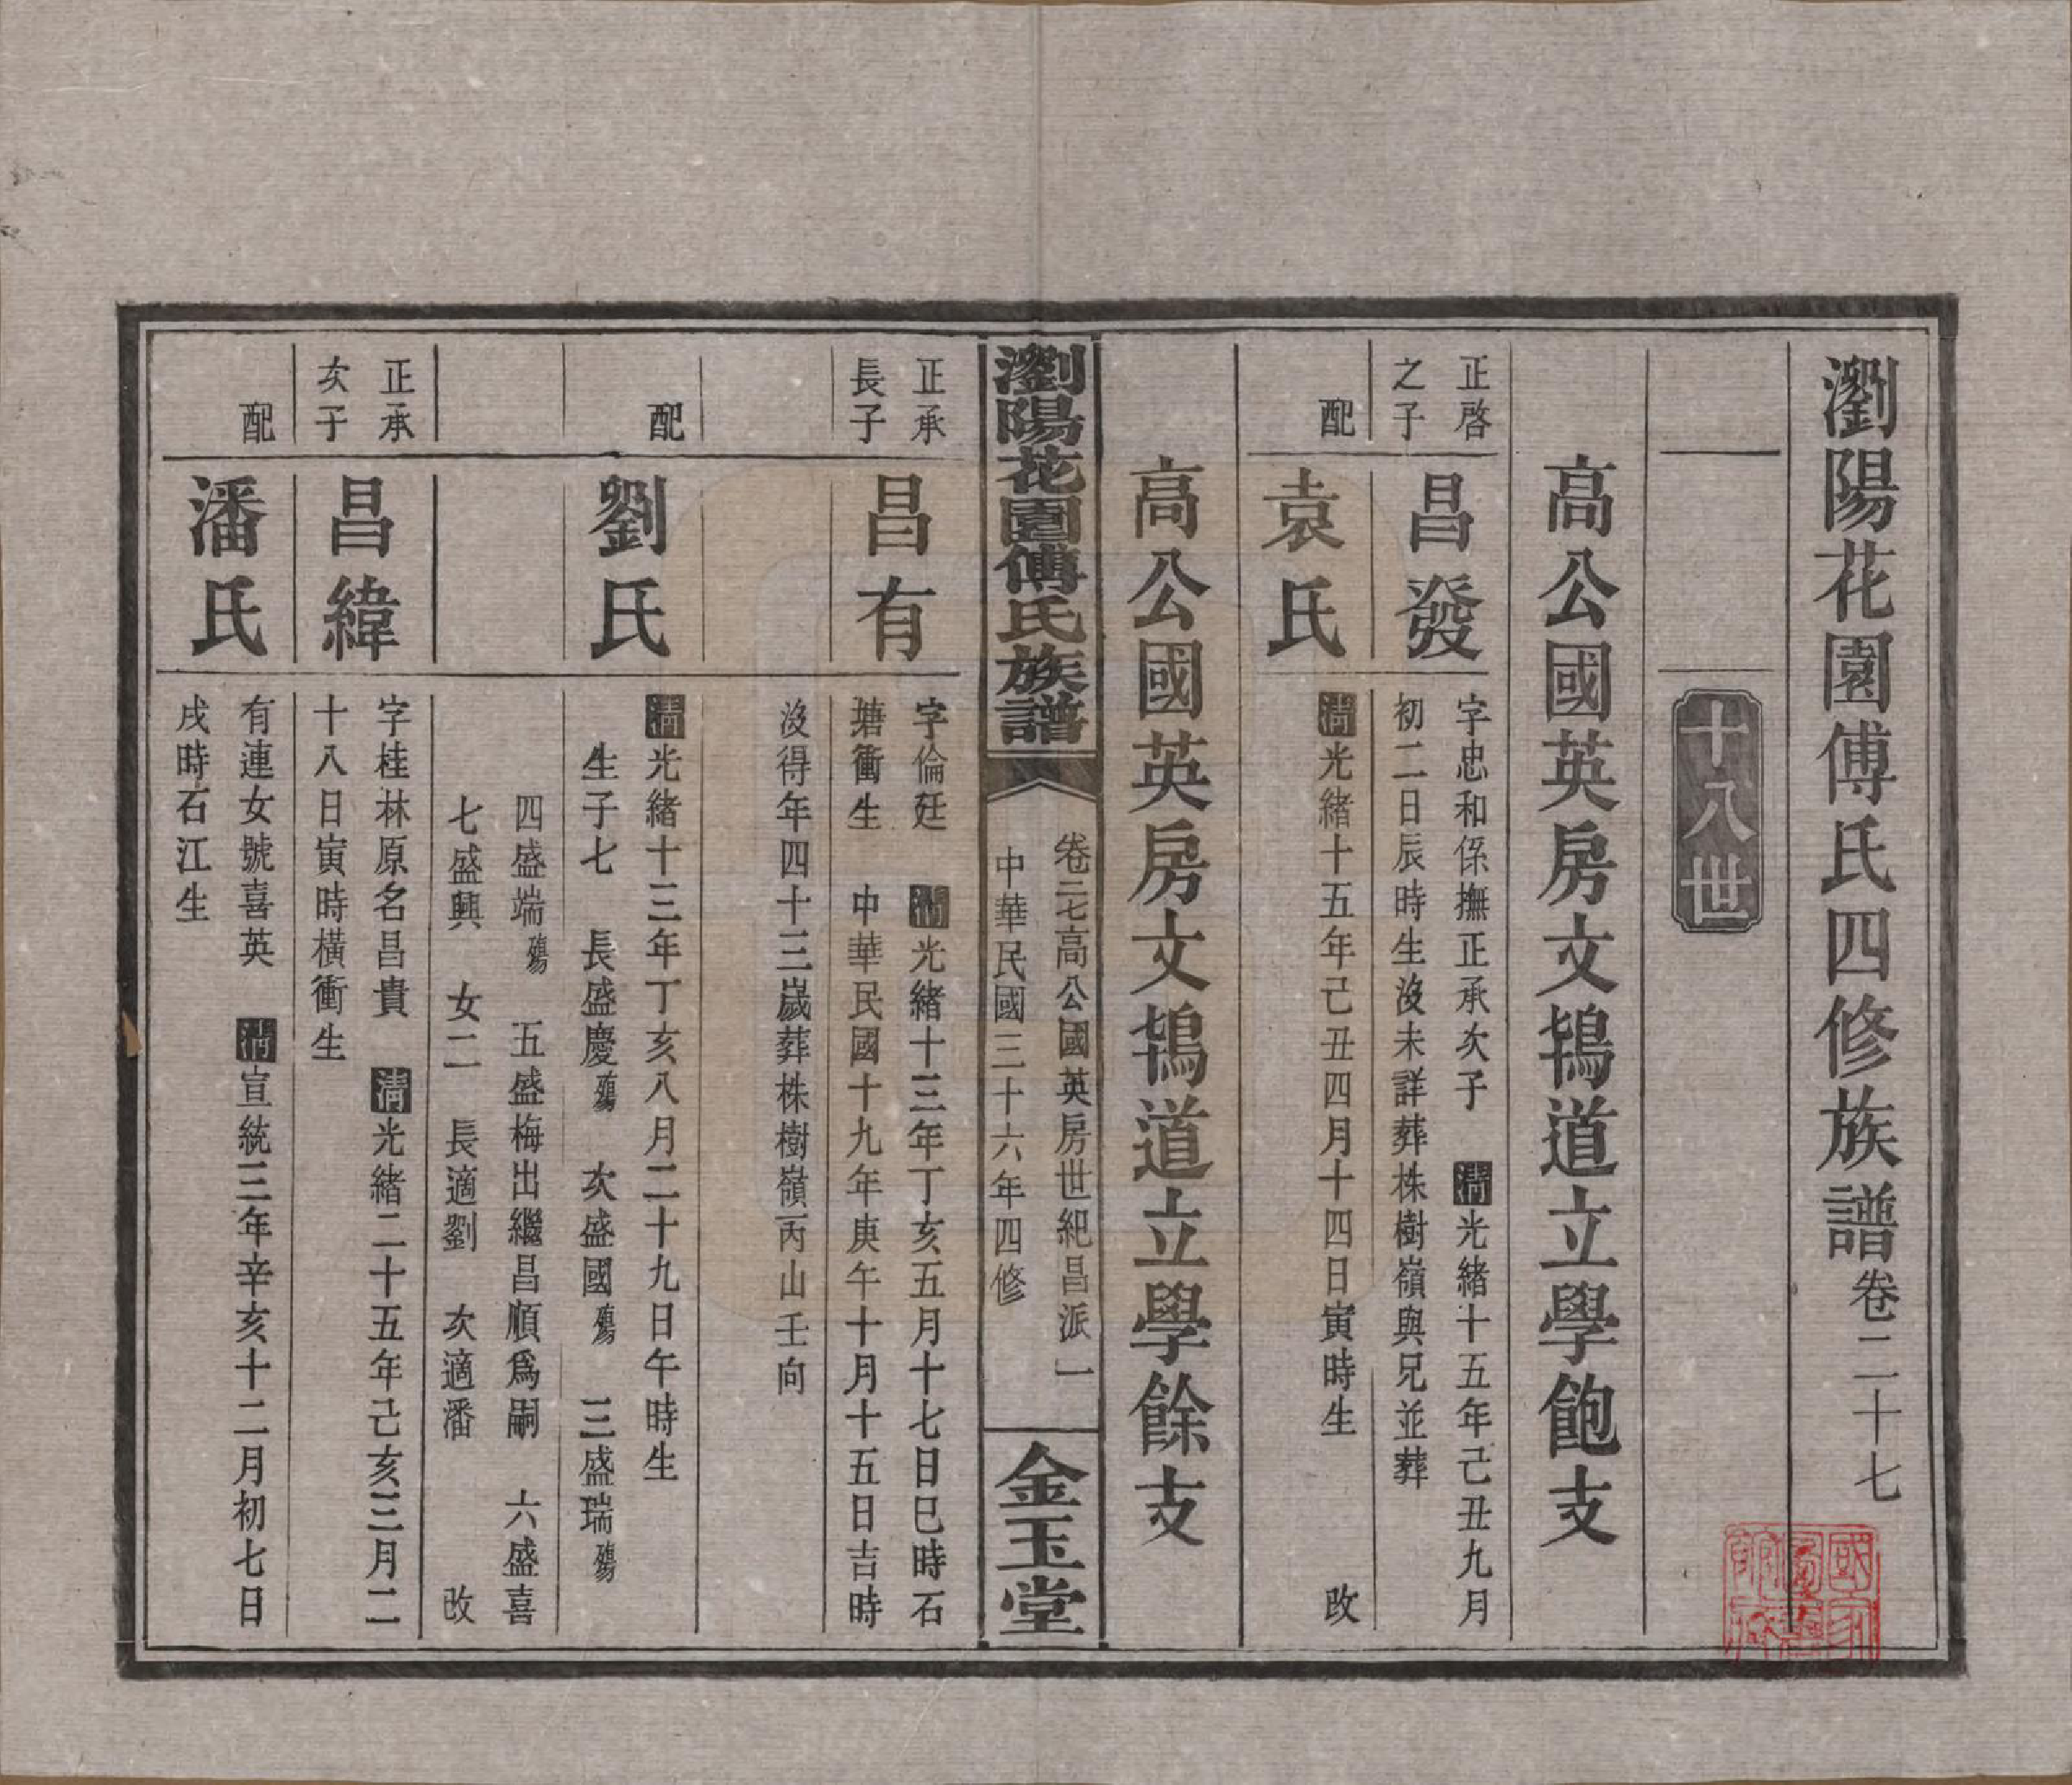 瀏陽花園傅氏四修族譜卷二十七
十八世
高公國英房文鳺道立學飽支
正啓
之子
昌發
字忠和係撫正承次子 清光緒十五年己丑九月
初二日辰時生沒未詳葬株樹嶺與兄並葬
配
袁氏
清光緒十五年己丑四月十四日寅時生 改
高公國英房文鳺道立學餘支
瀏陽花園傅氏族譜
卷二七高公國英房世紀昌派 一
中華民國三十六年四修
金玉堂
正承
長子
昌有
字倫廷 清光緒十三年丁亥五月十七日巳時石
塘衝生 中華民國十九年庚午十月十五日吉時
沒得年四十三歲葬株樹嶺丙山壬向
配
劉氏
清光緒十三年丁亥八月二十九日午時生
生子七 長盛慶殤 次盛國殤 三盛瑞殤
四盛端殤 五盛梅出繼昌順爲嗣 六盛喜
七盛興 女二 長適劉 次適潘 改
正承
次子
昌緯
字桂林原名昌貴 清光緒二十五年己亥三月二
十八日寅時橫衝生
配
潘氏
有連女號喜英 清宣統三年辛亥十二月初七日
戌時石江生